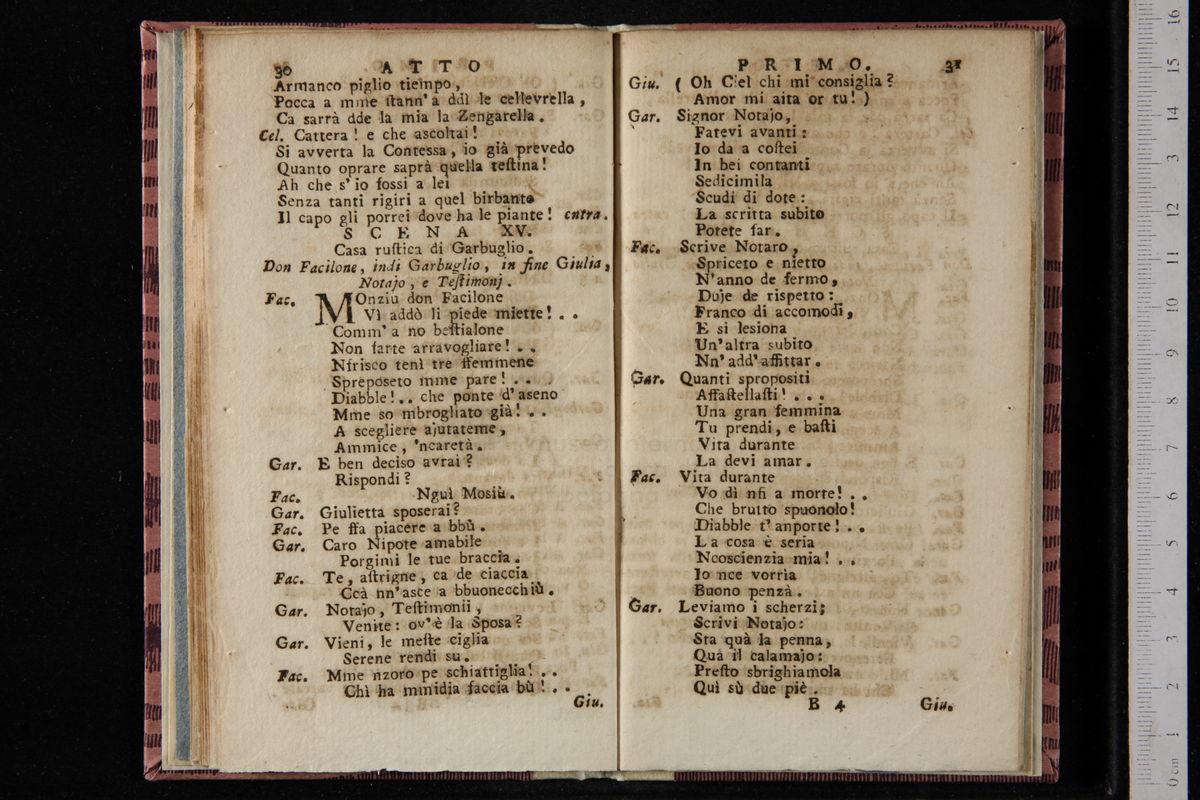 30 A T T O
Armanco piglio tiempo,
Pocca a mme ſtann' a ddì le cellevrella,
Ca sarrà dde la mia la Zengarella.
Cel. Cattera! e che ascoltai!
Si avverta la Contessa, io già prevedo
Quanto oprare saprà quella teſtina!
Ah che s' io fossi a lei
Senza tanti rigiri a quel birbante
Il capo gli porrei dove ha le piante! entra.
S C E N A XV.
Casa ruſtica di Garbuglio.
Don Facilone, indi Garbuglio, in fine Giulia,
Notajo, e Teſtimonj.
Fac. MOnziu don Facilone
Vì addò li piede miette! . .
Comm' a no beſtialone
Non farte arravogliare! . .
Nfrisco tenì tre ffemmene
Spreposeto mme pare! . .
Diabble! . . che ponte d' aseno
Mme so mbrogliato già! . .
A scegliere ajutateme,
Ammice, 'ncaretà.
Gar. E ben deciso avrai?
Rispondi?
Fac. Nguì Mosiù.
Gar. Giulietta sposerai?
Fac. Pe ffa piacere a bbù.
Gar. Caro Nipote amabile
Porgimi le tue braccia.
Fac. Te, aſtrigne, ca de ciaccia
Ccà nn' asce a bbuonecchiù.
Gar. Notajo, Teſtimonii,
Venite: ov' è la Sposa?
Gar. Vieni, le meſte ciglia
Serene rendi su.
Fac. Mme nzoro pe schiattiglia! . .
Chì ha mmidia faccia bù! . .
Giu.
P R I M O. 31
Giu. ( Oh Ciel chi mi consiglia?
Amor mi aita or tu! )
Gar. Signor Notajo,
Fatevi avanti:
Io da a coſtei
In bei contanti
Sedicimila
Scudi di dote:
La scritta subito
Potete far.
Fac. Scrive Notaro,
Spriceto e nietto
N' anno de fermo,
Duje de rispetto:
Franco di accomodi,
E si lesiona
Un' altra subito
Nn' add' affittar.
Gar. Quanti spropositi
Affaſtellaſti! . . .
Una gran femmina
Tu prendi, e baſti
Vita durante
La devi amar.
Fac. Vita durante
Vo dì nfi a morte! . .
Che brutto spuonolo!
Diabble t' anporte! . .
La cosa è seria
Ncoscienzia mia! . .
Io nce vorrìa
Buono penzà.
Gar. Leviamo i scherzi;
Scrivi Notajo:
Sta quà la penna,
Quà il calamajo:
Preſto sbrighiamola
Quì sù due piè.
B 4 Giu.